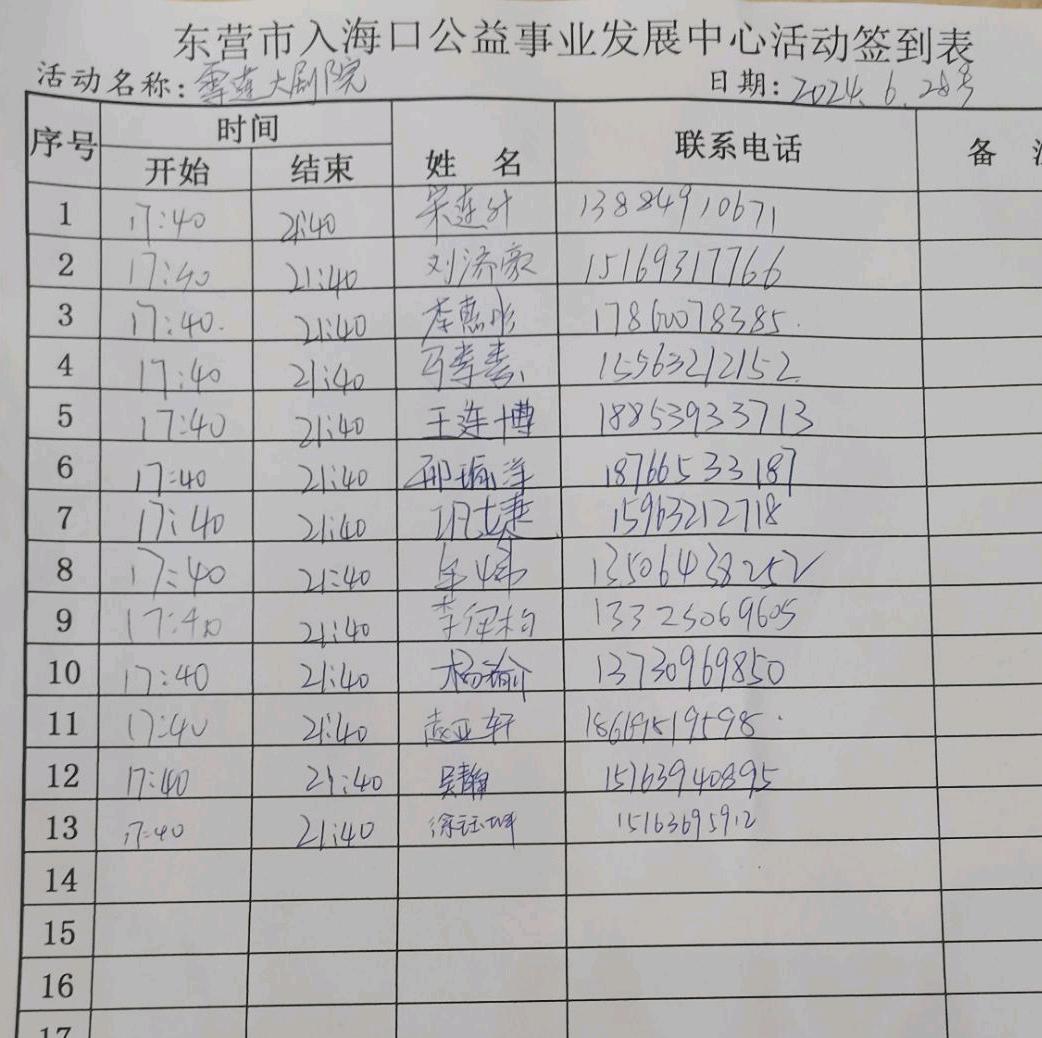 东营市入海口公益事业发展中心活动签到表
活动名称：雪莲大剧院 日期：2024.6.28号
序号 时间 姓名 联系电话 备
开始 结束
1 17:40 21:40 宋连升 13884910671
2 17:40 21:40 刘济豪 15169317766
3 17:40. 21:40 李惠彤 17860078385.
4 17:40 21:40 马孝春 15563212152
5 17:40 21:40 王连博 18853933713
6 17:40 21:40 邢瑜洋 18766533187
7 17:40 21:40 15963212718
8 17:40 21:40 13506438252
9 17:40 21:40 李伊杓 13325069605
10 17:40 21:40 杨瑜 13730969850
11 17:40 21:40 袁亚轩
12 17:40 21:40 吴静 15163940895
13 17:40 21:40 徐钰坤 15163695912
14
15
16
17